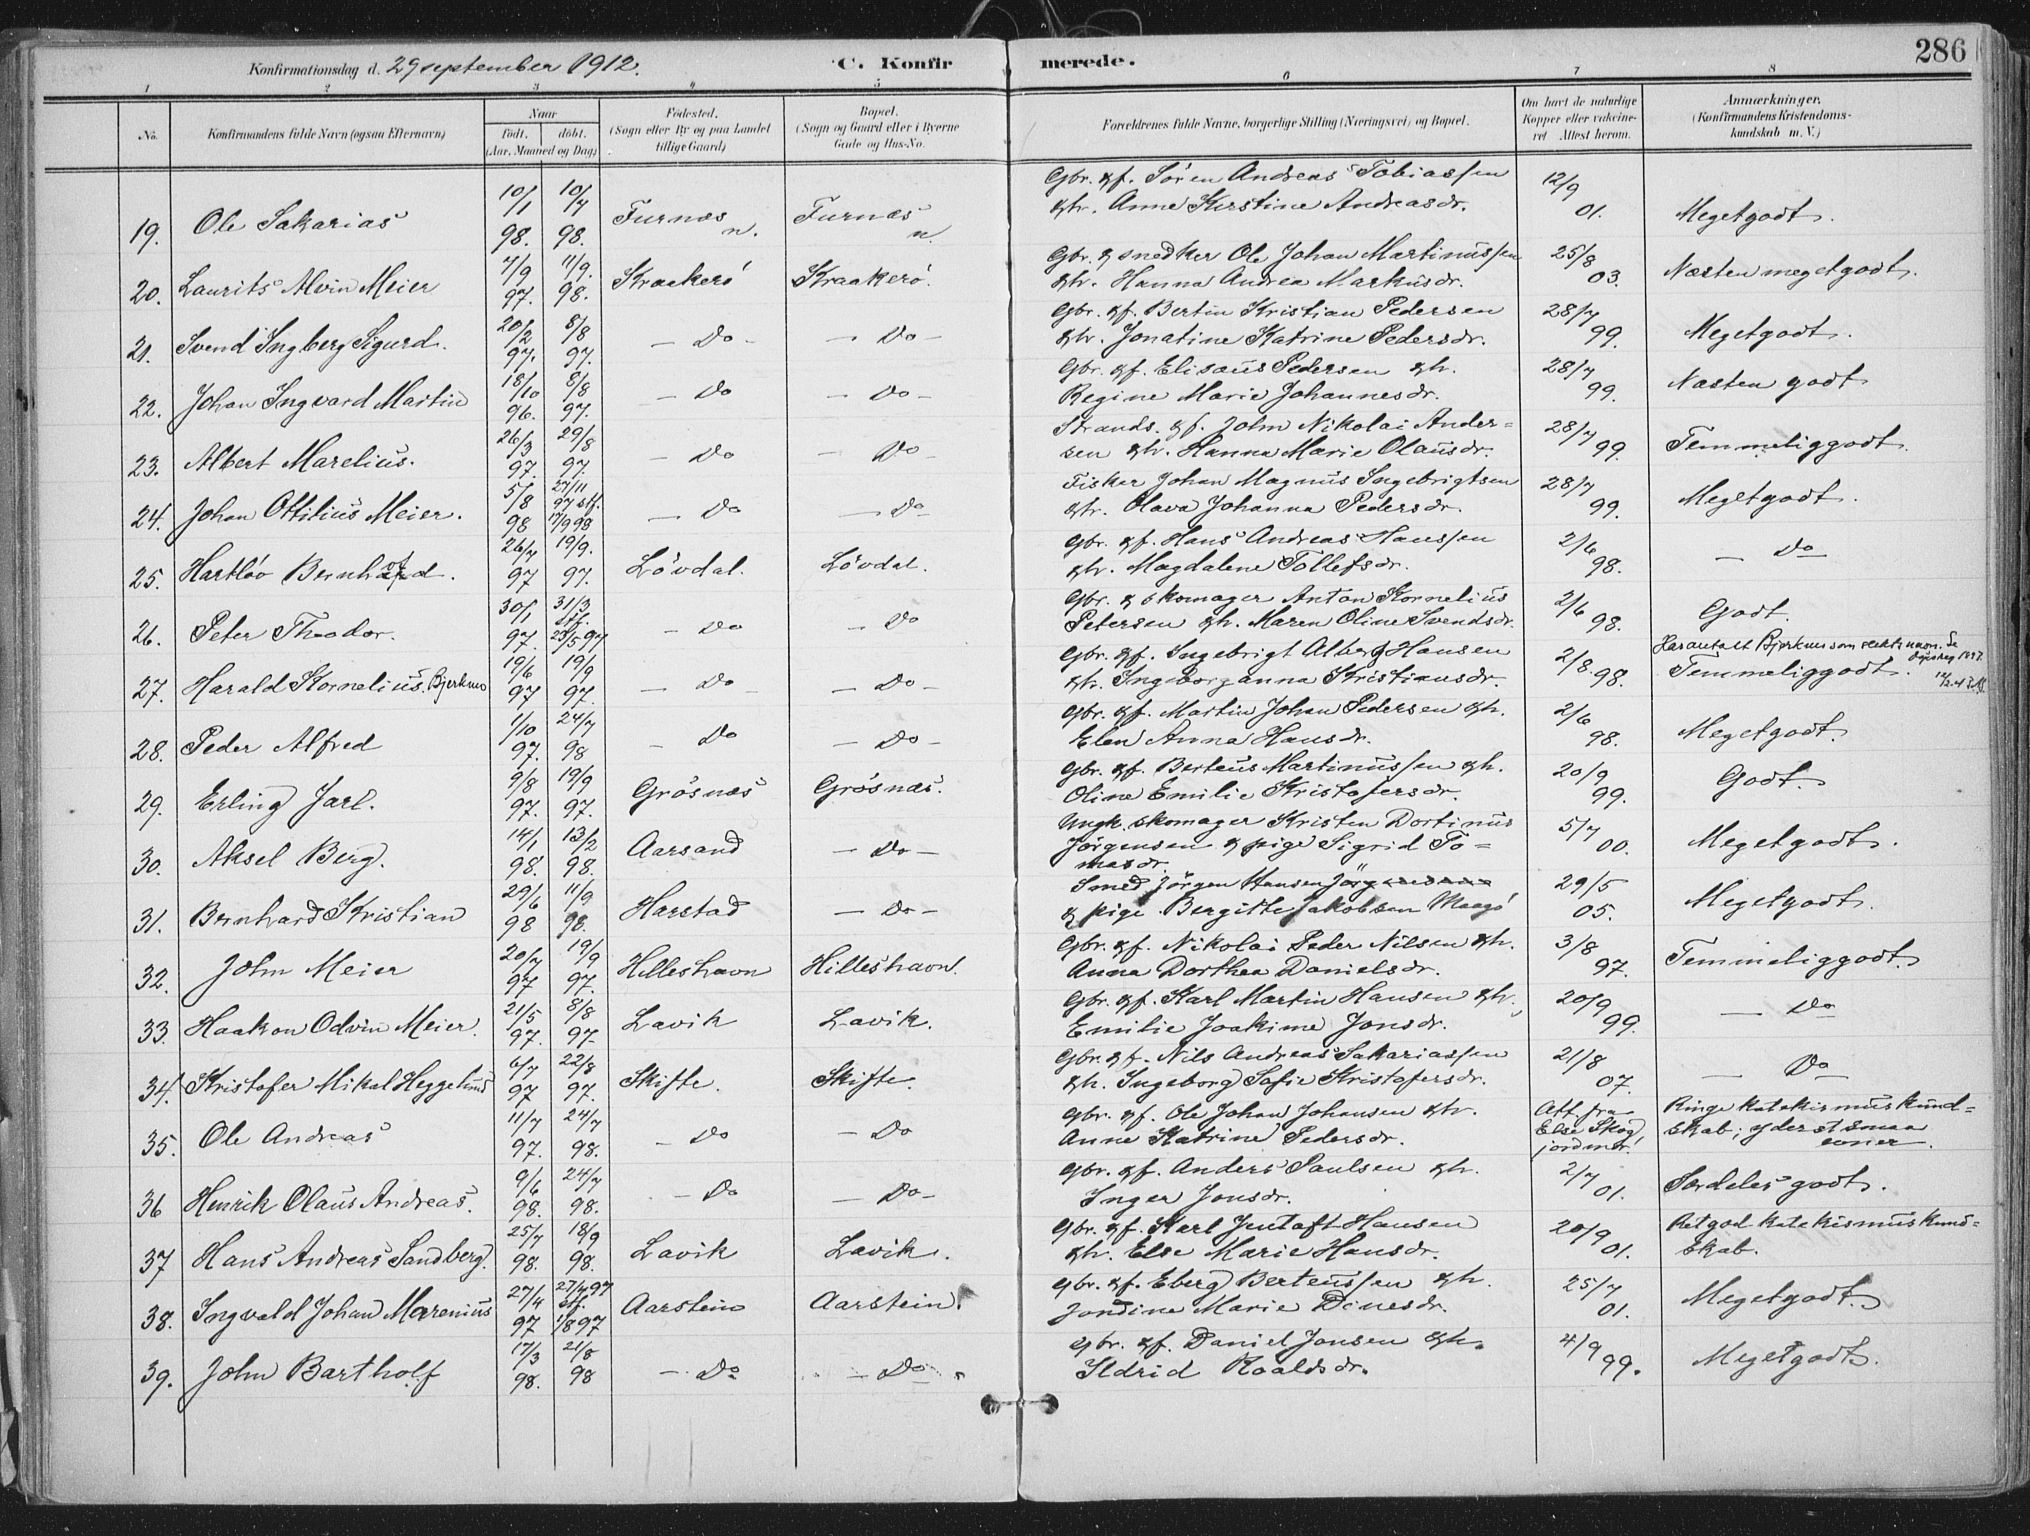 286
Konfirmationsdag d. 29 september 1912.
C. Konfirmerede.
1 2 3 4 5 6 7 8
No.
Konfirmandens fulde Navn (ogsaa Efternavn)
Naar
født. døbt.
(Aar, Maaned og Dag)
Fødested.
(Sogn eller By og paa Landet
tillige Gaard)
Bopæl.
(Sogn og Gaard eller i Byerne
Gade og Hus-No.
Forældrenes fulde Navne, borgerlige Stilling (Næringsvei) og Bopæl.
Om havt de naturlige
Kopper eller vakcine-
ret Attest herom.
Anmærkninger.
(Konfirmandens Kristendoms-
kundskab m. V.)
19. Ole Sakarias 10/1 98. 10/7 98. Furnæs n. Furnæs n. Gbr. & f. Sören Andreas Tobiassen
& h. Anne Kirstine Andreasdr. 12/9 01. Meget godt.
20. Laurits Alvin Meier 7/9 97. 11/9. 98. Kraakerö Kraakerö. Gbr. & snedker Ole Johan Martinussen
& h. Hanna Andrea Markusdr. 25/8 03. Næsten meget godt.
21. Svend Ingberg Sigurd. 20/2 97. 8/8 97. — Do — — Do — Gbr. & f. Bertin Kristian Pedersen
& h. Jonatine Katrine Pedersdr. 28/7 99. Meget godt.
22. Johan Ingvard Martin 18/10 96. 8/8 97. — Do — Do — Gbr. & f. Elisæus Pedersen & h.
Regine Marie Johannesdr. 28/7 99. Næsten godt
23. Albert Marelius. 26/3 97. 29/8 97. — Do — Do — Strands. & f. John Nikolai Ander=
sen & h. Hanna Marie Olausdr. 28/7 99. Temmelig godt.
24. Johan Ottilius Meier. 5/8 98 27/11 97 stf. 17/9 98 — Do — Do — Fisker Johan Magnus Ingebrigtsen
& h. Olava Johanna Pedersdr. 28/7 99. Meget godt.
25. Hartløv Bernhard. 26/7 97 19/9. 97. Lövdal. Lövdal. Gbr. & f. Hans Andreas Hanssen
& h. Magdalene Tollefsdr. 2/6 98. — Do —
26. Peter Theodor. 30/1 97. 31/3 stf. 23/5 97 — Do — Do Gbr. & skomager Anton Kornelius
Petersen & h. Maren Oline Svendsdr. 2/6 98. Godt.
27. Harald Kornelius. Bjerkmo 19/6 97 19/9 97. — Do — — Do — Gbr. & f. Ingebrigt Albert Hansen
& h. Ingeborganna Kristiansdr. 2/8. 98. Har antatt Bjerkmo som slektsnavn. Se
Temmelig godt.
28. Peder Alfred 1/10 97. 24/7 98 — Do — Do — Gbr. & f. Martin Johan Pedersen & h.
Elen Anna Hansdr. 2/6 98. Meget godt.
29. Erling Jarl. 9/8 97. 19/9 97. Grösnæs Grösnæs. Gbr. & f. Berteus Martinussen & h.
Oline Emilie Kristofersdr. 20/9 99. Godt.
30. Aksel Berg. 14/1 98. 13/2 98. Aarsand — Do — Ungk. skomager Kristen Dortinus
Jörgensen & pige Sigrid To=
masdr. 5/7 00. Meget godt.
31. Bernhard Kristian 29/6 98 11/9 98. Harstad — Do — Smed Jörgen Hansen
& pige Bergitte Jakobsen Maagö 29/5 05. Meget godt.
32. John Meier 20/7 97 19/9 97. Hilleshavn Hilleshavn. Gbr. & f. Nikolai Peder Nilsen & h.
Anna Dorthea Danielsdr. 3/8 97. Temmelig godt.
33. Haakon Odvin Meier. 21/5 97. 8/8 97. Lavik Lavik. Gbr. & f. Karl Martin Hansen & h.
Emilie Joakime Jonsdr. 20/9 99. — Do
34. Kristofer Mikal Heggelund 6/7 97 22/8 97. Skifte. Skifte. Gbr. & f. Nils Andreas Sakariassen
& h. Ingeborg Sofie Kristofersdr. 21/8 07. — Do
35. Ole Andreas 11/7 97. 24/7 98. — Do — Do Gbr. & f. Ole Johan Johansen & h.
Anne Katrine Pedersdr. Att. fra
Else Skog,
jordmor. Ringe katekismuskund=
skab; yderst smaa
evner.
36 Henrik Olaus Andreas. 9/6 98. 24/7 98. — Do — Do — Gbr. & f. Anders Paulsen & h.
Inger Jonsdr. 2/7 01. Særdeles godt.
37 Hans Andreas Sandberg. 25/7 98. 18/9 98. Lavik Lavik. Gbr. & f. Karl Jentoft Hansen
& h. Else Marie Hansdr. 20/9 01. Ret god katekismuskund=
skab.
38. Ingvald Johan Marenius 27/4 97 27/4 97 stf. 1/8 97 Aarstein Aarstein. Gbr. & f. Eberg Berteussen & h.
Jondine Marie Dinesdr. 25/7 01. Meget godt.
39. John Bartholf 17/3 98. 21/8 98 — Do — Do Gbr. & f. Daniel Jonsen & h.
Ildrid Roaldsdr. 4/9 99. Meget godt.